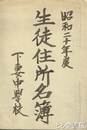 昭和二十年度
生徒住所名簿
下妻中學校